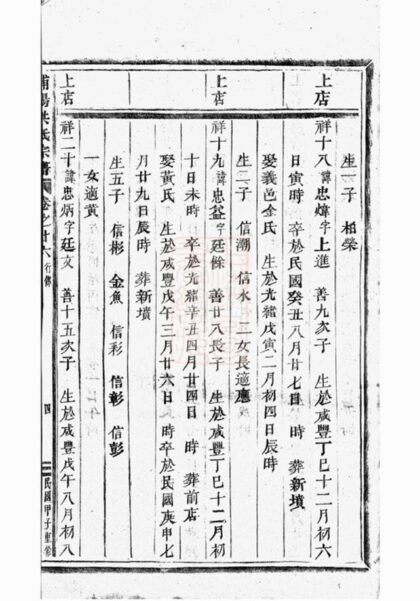 上店
生一子 相榮
祥十八諱忠煒字上進 善九次子 生於咸豐丁巳十二月初六
日寅時 卒於民國癸丑八月廿七日 時 葬新墳
娶義邑余氏 生於光緒戊寅二月初四日辰時
生二子 信潮 信水 二女長適廳
上店
祥十九諱忠益字廷餘 善廿八長子 生於咸豐丁巳十二月初
十日未時 卒於光緒辛丑四月廿四日 時 葬前店
娶黃氏 生於咸豐戊午三月廿六日 時卒於民國庚申七
月廿九日辰時 葬新墳
生五子 信彬 金魚 信彩 信彰 信彭
一女適黃
上店
祥二十諱忠炳字廷文 善十五次子 生於咸豐戊午八月初八
浦陽洪氏宗譜 卷之廿六 行傳 四 民國甲子重修